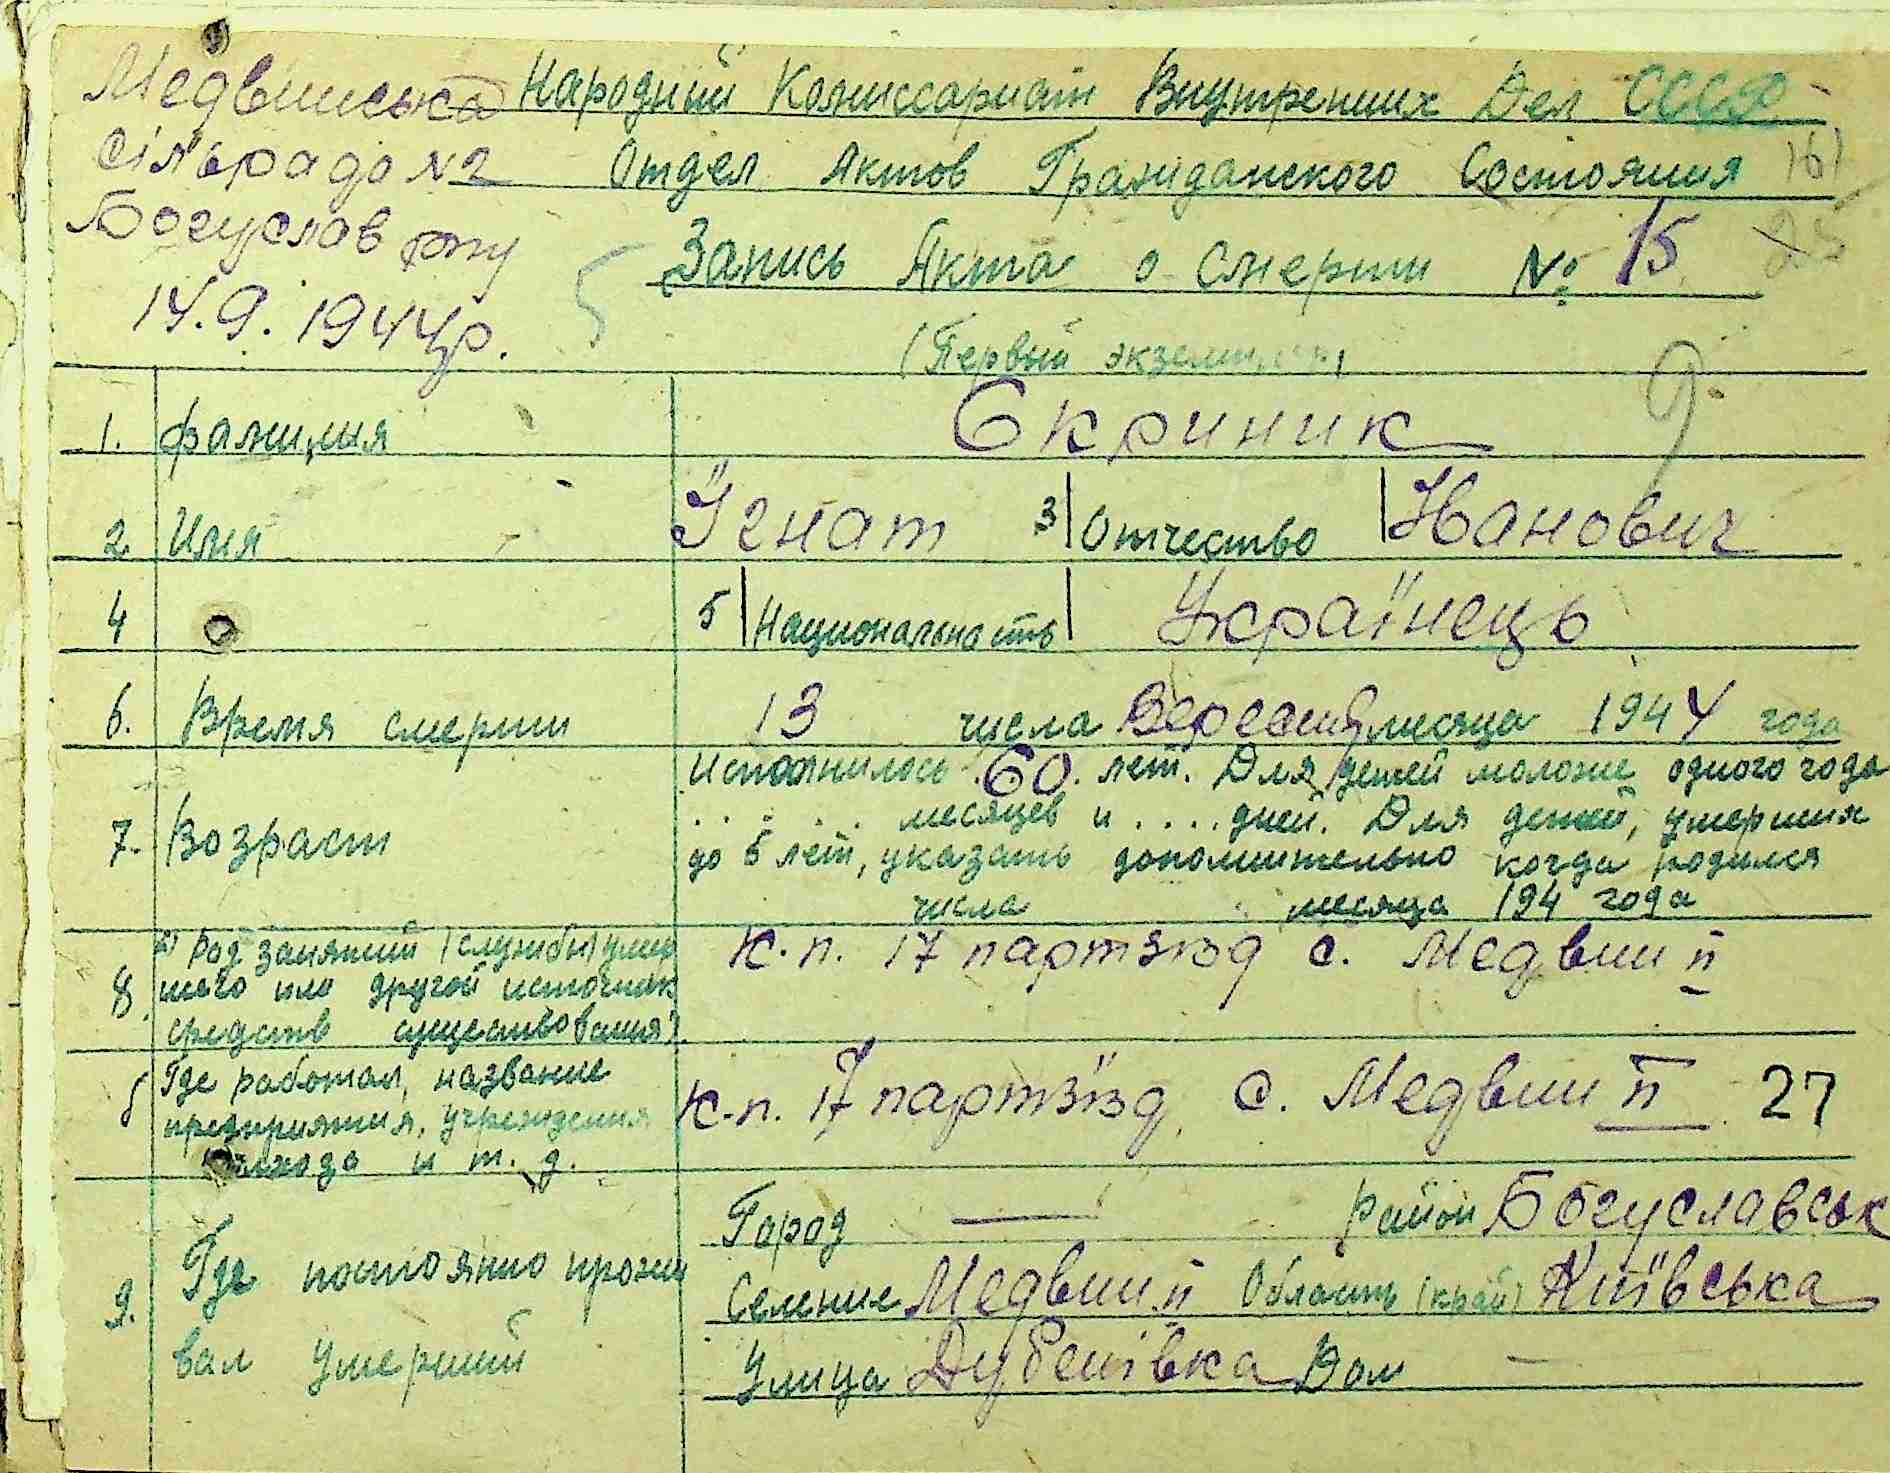 Медвинська
сільрада №2
Богуслав р-ну
14.9.1944р.
Народний Комиссариат Внутренних Дел СССР
Отдел Актов Гражданского Состояния 161
Запись Акта о смерти № 15 25
(Первый экземпляр)
1. Фамилия Скриник
2 Имя Ігнат 3 Отчество Иванович
4 5 Национальность Українець
6. Время смерти 13 числа Вересня месяца 1944 года
7. Возраст Исполнилось 60 лет. Для детей моложе одного года
. . . . месяцев и . . . . дней. Для детей, умерших
до 5 лет, указать дополнительно когда родился
числа месяца 194 года
8. а) Род занятий (службы) умер
шего или другой источник
средств существования).
к.п. 17 партзїзд с. Медвин ІІ
б Где работал, название
предприятия, учреждения
колхоза и т. д.
к-п. 17 партзїзд с. Медвин ІІ 27
9. Где постоянно прожи
вал умерший
Город — Район Богуславськ
Селение Медвин ІІ Область (край) Київська
Улица Дубенівка Дом —